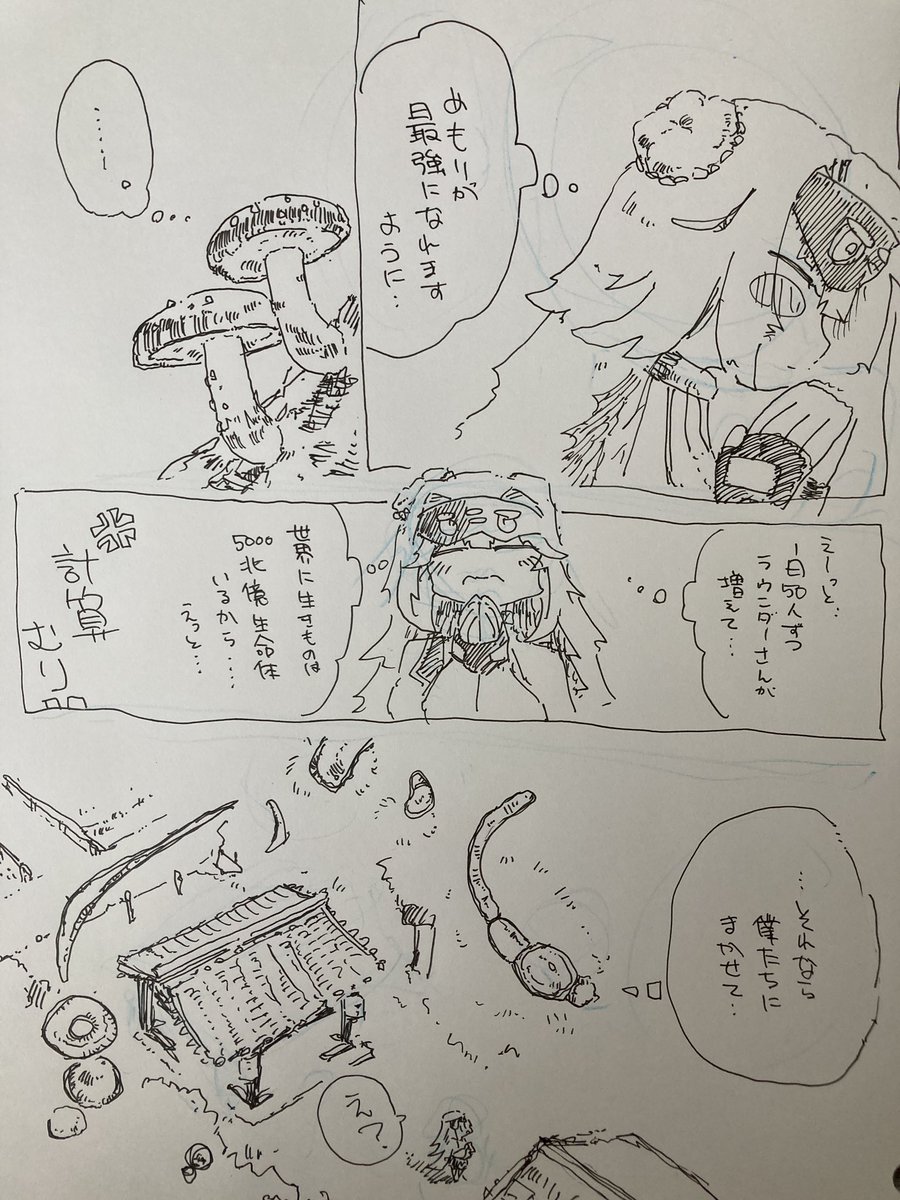 めもりが
最強になれます
ように…
……
えーっと…
一日50人ずつ
ラウンダーさんが
増えて…
世界に生すものは
5000北億生命体
いるから…
えっと…
計算
むり
…それなら
僕たちに
まかせて.